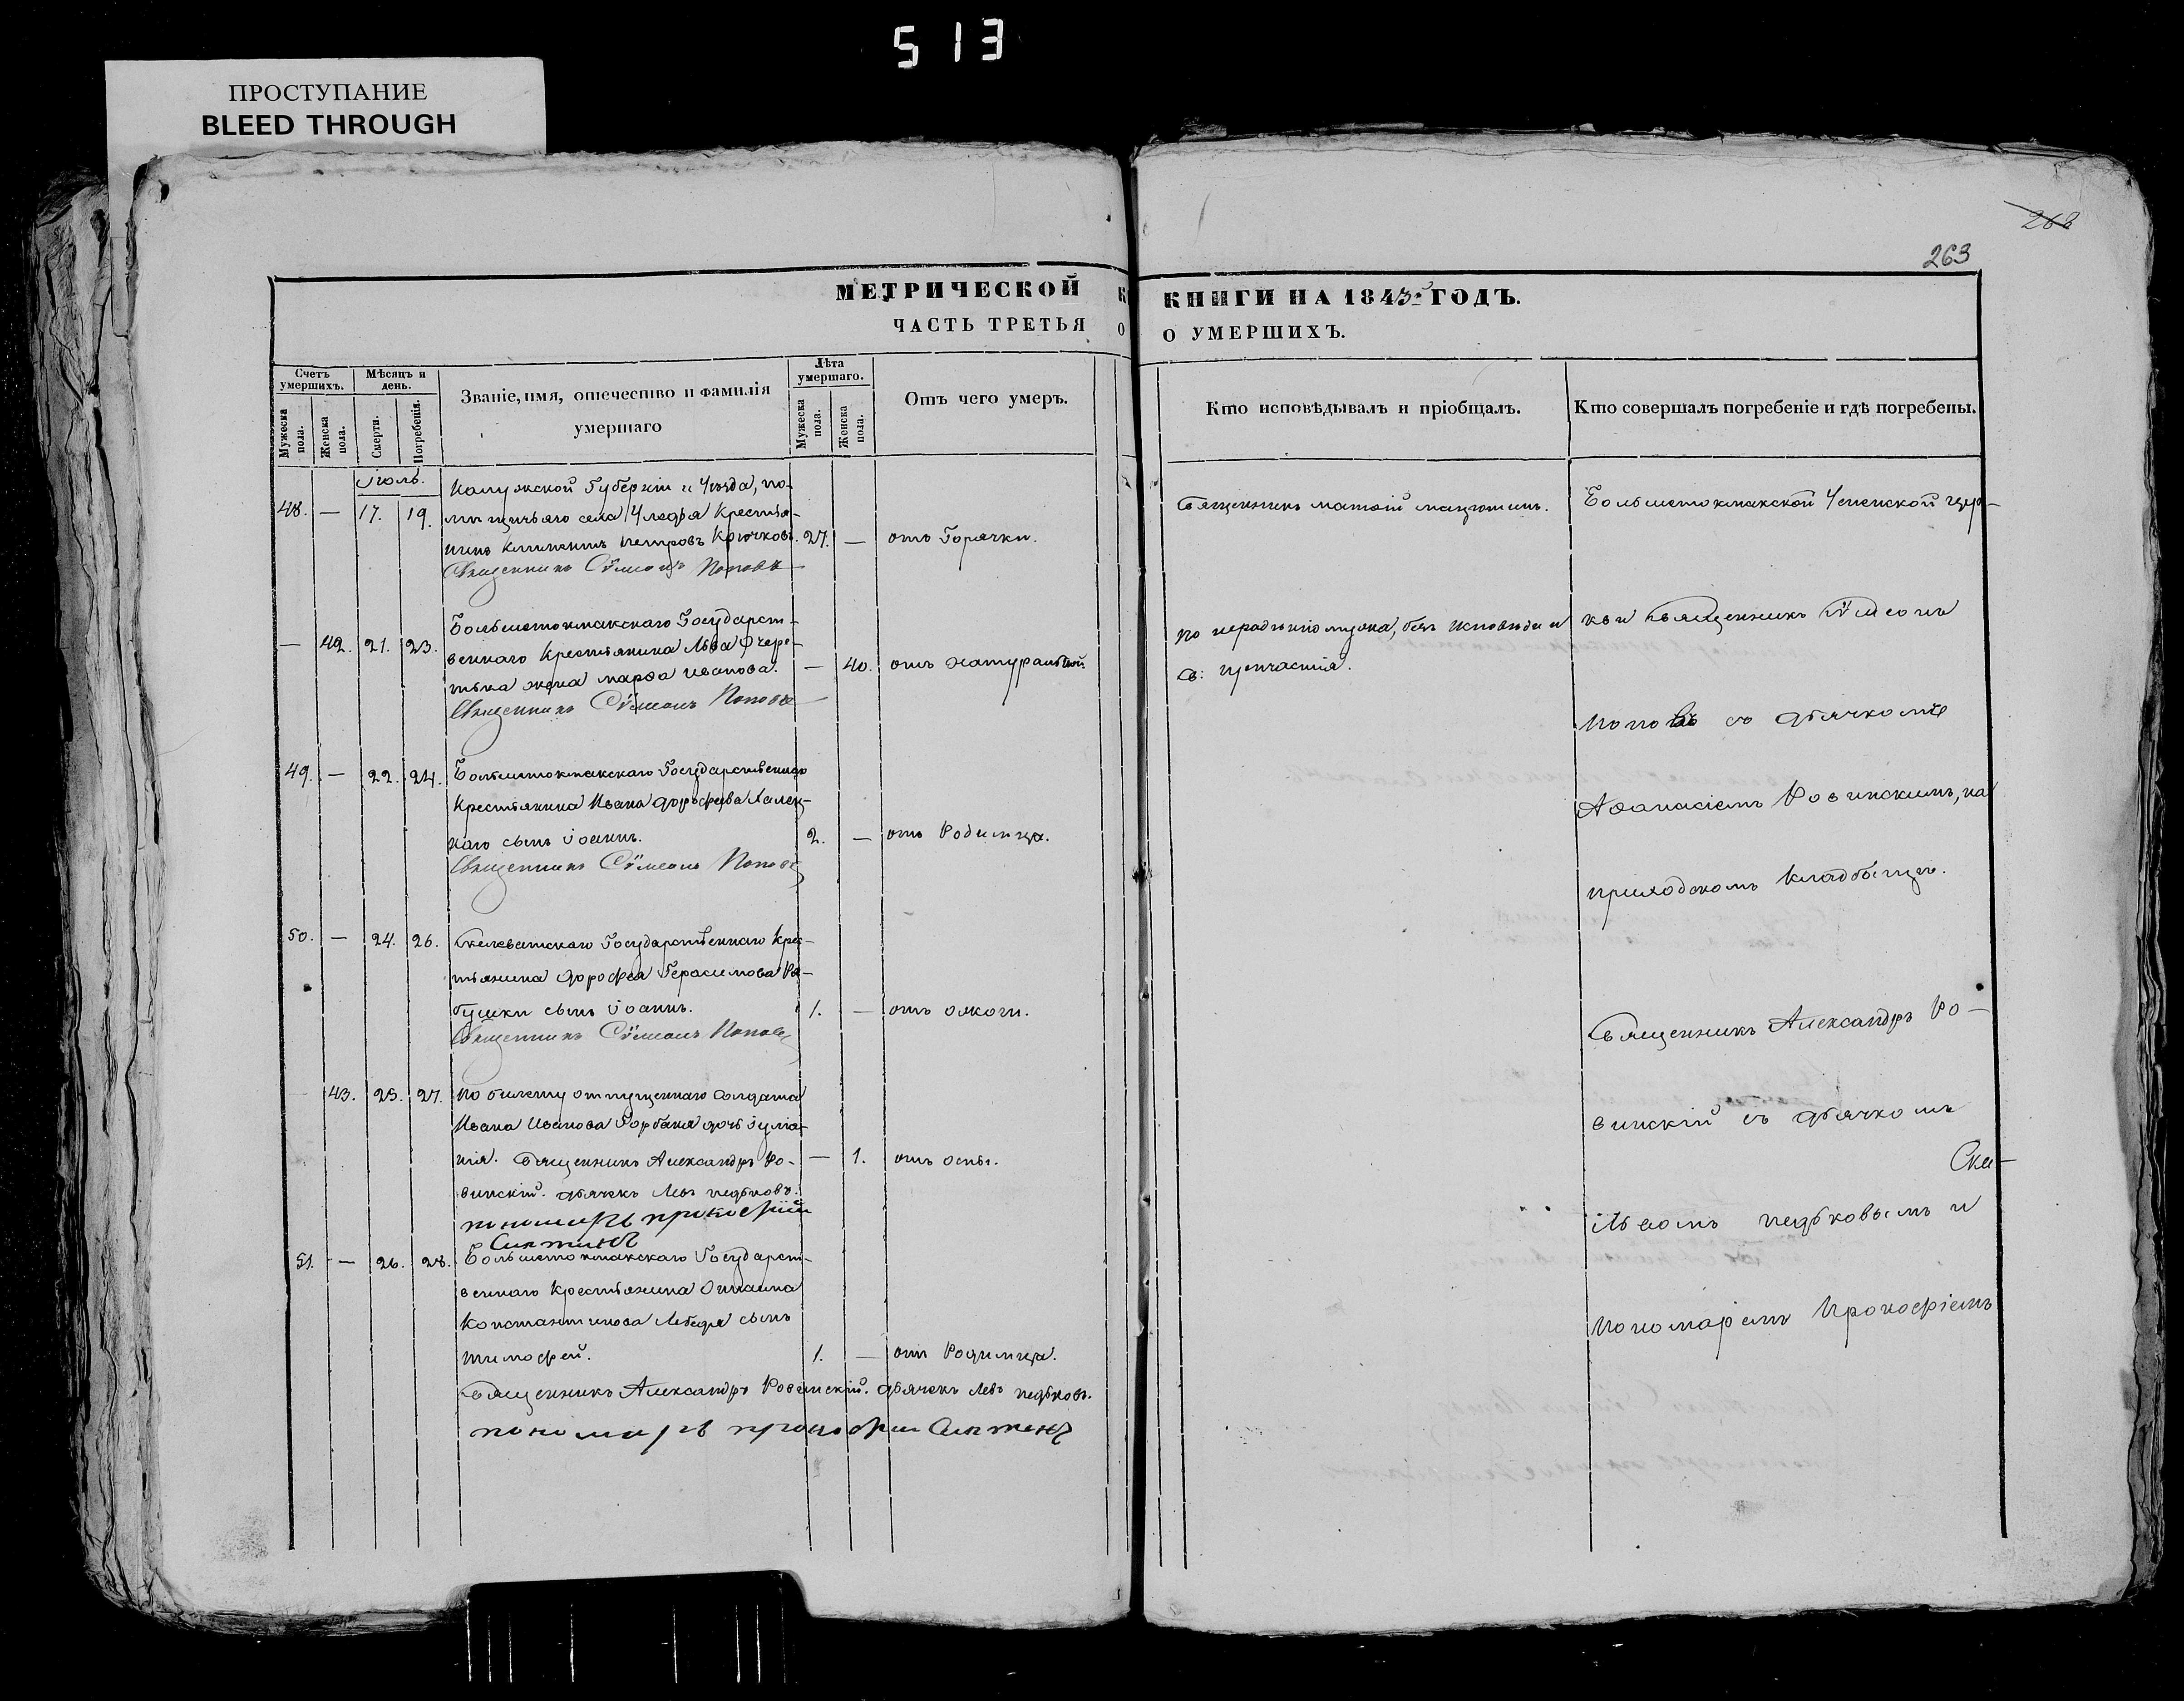 513
ПРОСТУПАНИЕ
BLEED THROUGH
268
263
МЕТРИЧЕСКОЙ
КНИГИ НА 1843. ГОДЪ.
ЧАСТЬ ТРЕТЬЯ
О УМЕРШИХЪ.
Счетъ умершихъ.
Мужеска пола.
Женска пола.
Мѣсяцъ и день.
Смерти.
Погребенія.
Званіе, имя, отечество и фамилія
умершаго
Лѣта умершаго.
Мужеска пола.
Женска пола.
Отъ чего умеръ.
Кто исповѣдывалъ и пріобщалъ.
Кто совершалъ погребеніе и гдѣ погребены.
Іюль.
48. — 17. 19.
Калужской Губерніи и Уѣзда, по-
села Крестья-
нинъ Петровъ Крючковъ. 27. — отъ Горячки.
Священникъ Сѵмеонъ Поповъ
— 42. 21. 23.
Большетокмакскаго Государст-
веннаго Крестьянина Льва Очере-
тька жена марѳа иванова. — 40. отъ натуральной
Священникъ Сѵмеонъ Поповъ
49. — 22. 24.
Большетокмакскаго Государственнаго
Крестьянина Ивана дорофѣева
каго сынъ Іоаннъ. 2. — отъ Родимца.
Священникъ Сѵмеонъ Поповъ
50. — 24. 26.
Государственнаго Крес-
тьянина дорофея Герасимова Ря-
бушки сынъ Іоаннъ. 1. — отъ
Священникъ Сѵмеонъ Поповъ
43. 25. 27.
По билету отпущеннаго солдата
Ивана Иванова Горбаня дочь Іулiа-
нія. Священникъ Александръ Ро- — 1. отъ оспы.
винскій. дьячекъ Левъ педьковъ.
пономарь прокофій
51. — 26. 28.
Большетокмакскаго Государст-
веннаго Крестьянина
Константинова Лебедя сынъ
тимофей. 1. — отъ Родимца.
Священникъ Александръ Ровинскій. дьячекъ Левъ педьковъ.
пономарь прокофій
Священникъ матѳій
по нерадѣнію мужа, безъ исповѣди и
св: причастія.
Большетокмакской Успенской цер-
кви Священникъ Сѵмеонъ
Поповъ съ дьячкомъ
Аѳанасіемъ Ровинскимъ, на
приходскомъ кладбищѣ.
Священникъ Александръ Ро-
винскій съ дьячкомъ
Львомъ педьковымъ и
Пономаремъ Прокофіемъ